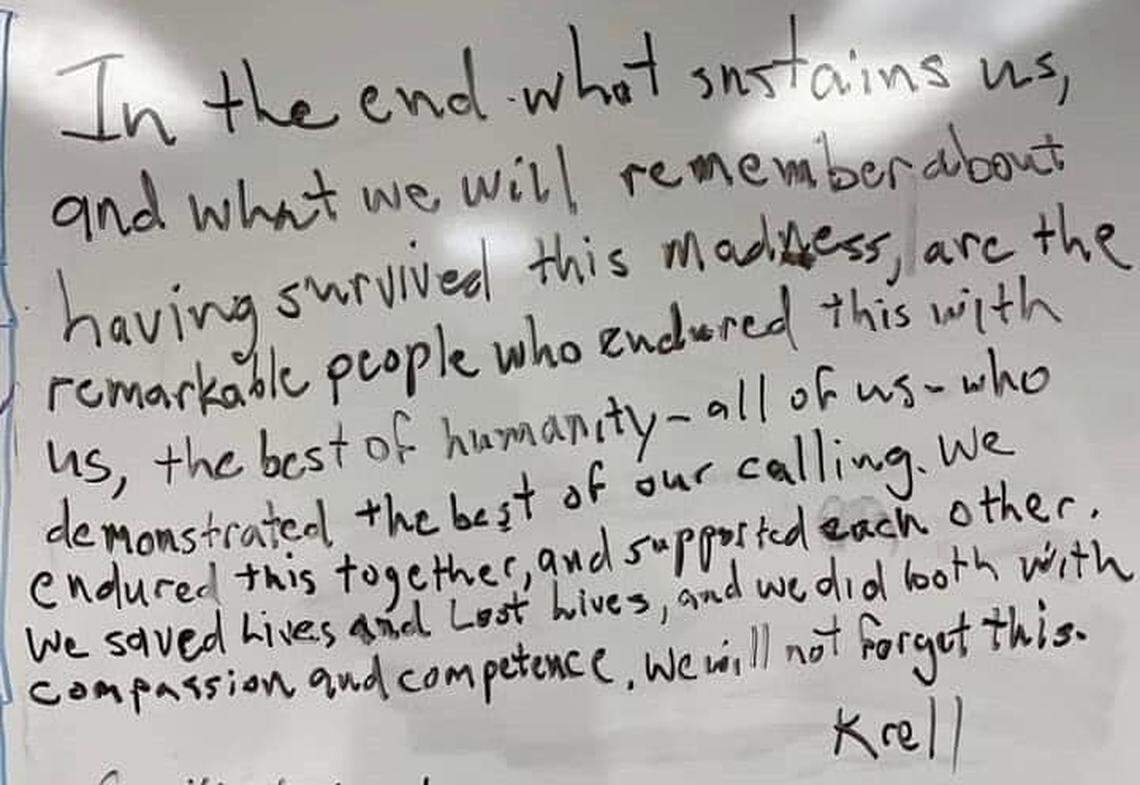 In the end what sustains us,
and what we will remember about
having survived this madness, are the
remarkable people who endured this with
us, the best of humanity - all of us - who
demonstrated the best of our calling. We
endured this together, and supported each other.
We saved Lives and Lost Lives, and we did both with
compassion and competence. We will not forget this.
Krell